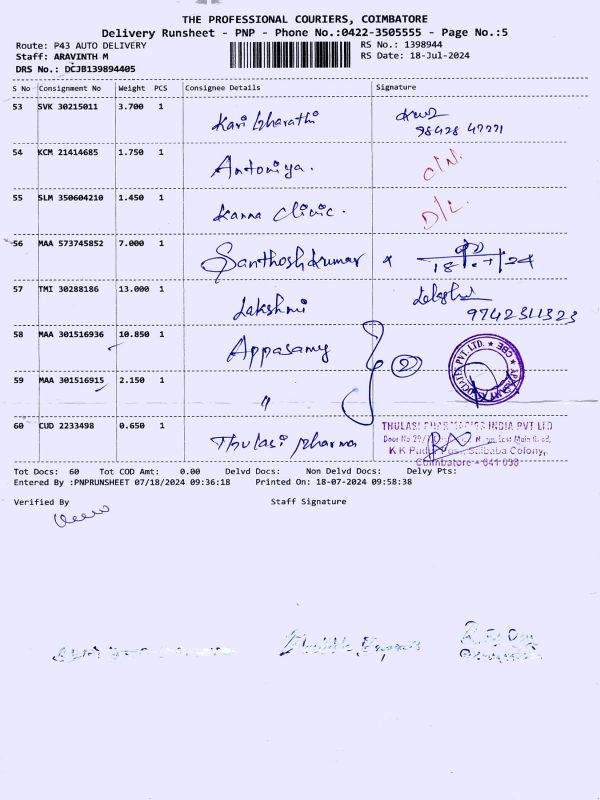 THE PROFESSIONAL COURIERS, COIMBATORE
Delivery Runsheet - PNP - Phone No.:0422-3505555 - Page No.:5
Route: P43 AUTO DELIVERY RS No.: 1398944
Staff: ARAVINTH M RS Date: 18-Jul-2024
DRS No.: DCJB139894405
S No Consignment No Weight PCS Consignee Details Signature
53 SVK 30215011 3.700 1 Kari bharathi
98428 47771
54 KCM 21414685 1.750 1 Antoniya. C/N.
55 SLM 350604210 1.450 1 Kanna Clinic. D/L.
56 MAA 573745852 7.000 1 Santhosh kumar x 18/07/24
57 TMI 30288186 13.000 1 Lakshmi
9742311323
58 MAA 301516936 10.850 1 Appasamy 2
59 MAA 301516915 2.150 1 "
60 CUD 2233498 0.650 1 Thulasi pharma
THULASI PHARMACIES INDIA PVT LTD
K K Pudur Post, Saibaba Colony,
Coimbatore - 641 038
Tot Docs: 60 Tot COD Amt: 0.00 Delvd Docs: Non Delvd Docs: Delvy Pts:
Entered By :PNPRUNSHEET 07/18/2024 09:36:18 Printed On: 18-07-2024 09:58:38
Verified By Staff Signature